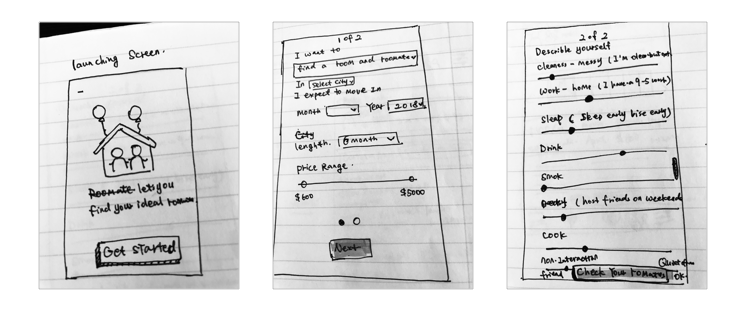 launching Screen.
Roomate lets you
find your ideal
Get started
1 of 2
I want to
find a room and roomate
In select city
I expect to move in
month Year 2018
City
length. 6 month
price Range.
$600 $5000
Next
2 of 2
Describle yourself
cleaness - messy (I'm clean but not
Work - home (I have a 9-5 work)
Sleep ( Sleep early rise early)
Drink
Smok
(host friends on weekends
Cook
non-Interaction
friend Check Your romates OK